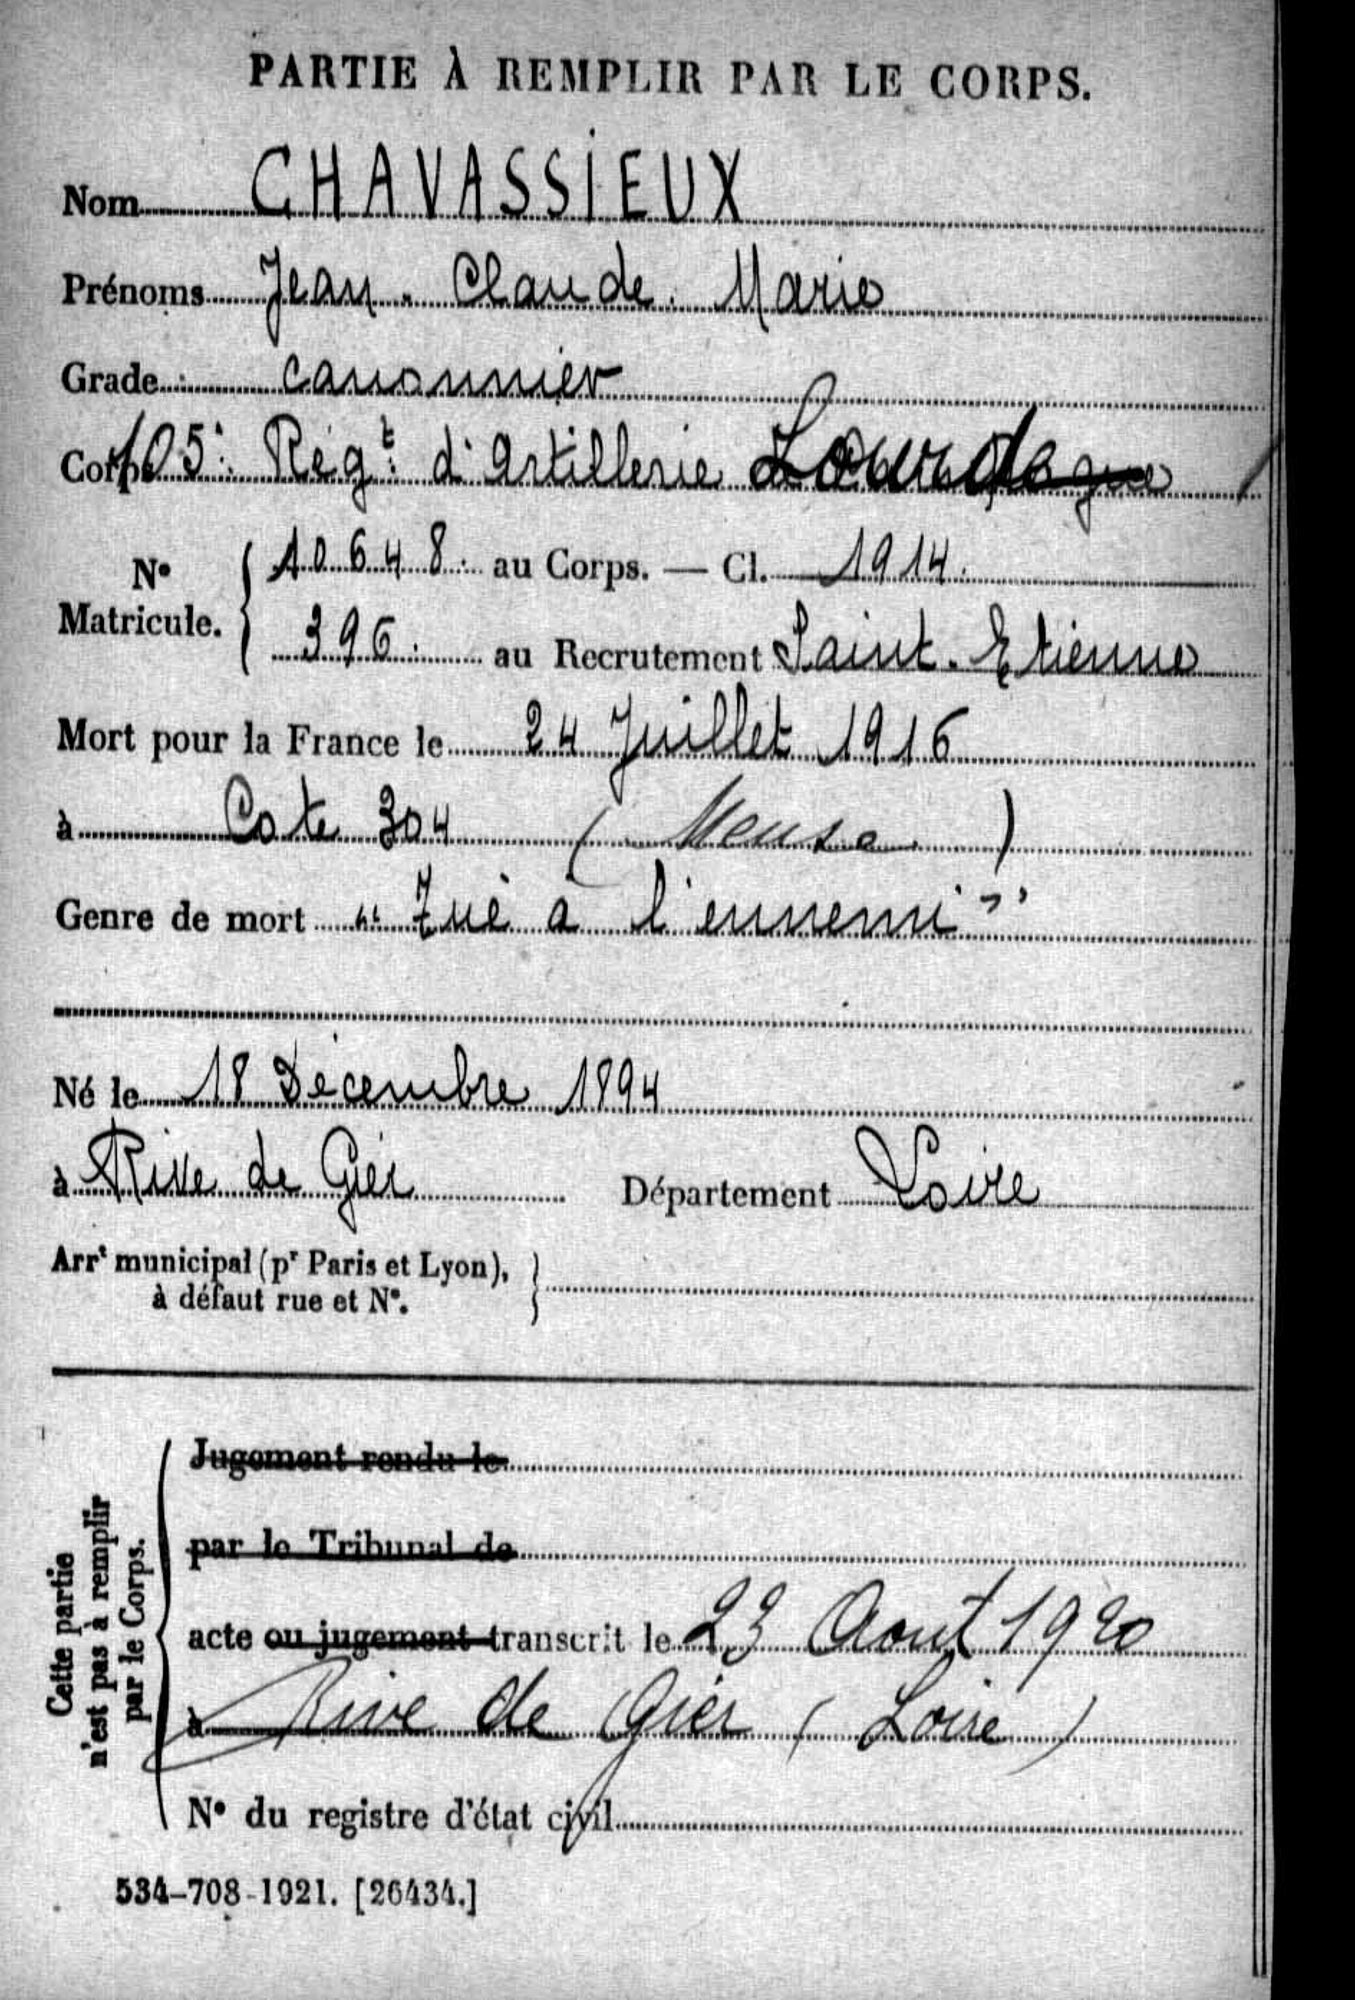 PARTIE À REMPLIR PAR LE CORPS.
Nom CHAVASSIEUX
Prénoms Jean. Claude. Marie
Grade canonnier
Corps 105e Régt d'Artillerie Lourde
N° Matricule. { 10648. au Corps. — Cl. 1914.
396. au Recrutement Saint-Etienne
Mort pour la France le 24 Juillet 1916
à Cote 304 (Meuse)
Genre de mort "Tué à l'ennemi"
Né le 18 Décembre 1894
à Rive de Gier Département Loire
Arrt municipal (pr Paris et Lyon), à défaut rue et N°. }
Cette partie n'est pas à remplir par le Corps.
Jugement rendu le
par le Tribunal de
acte ou jugement transcrit le 23 Aout 1920
à Rive de Gier (Loire)
N° du registre d'état civil
534-708-1921. [26434.]